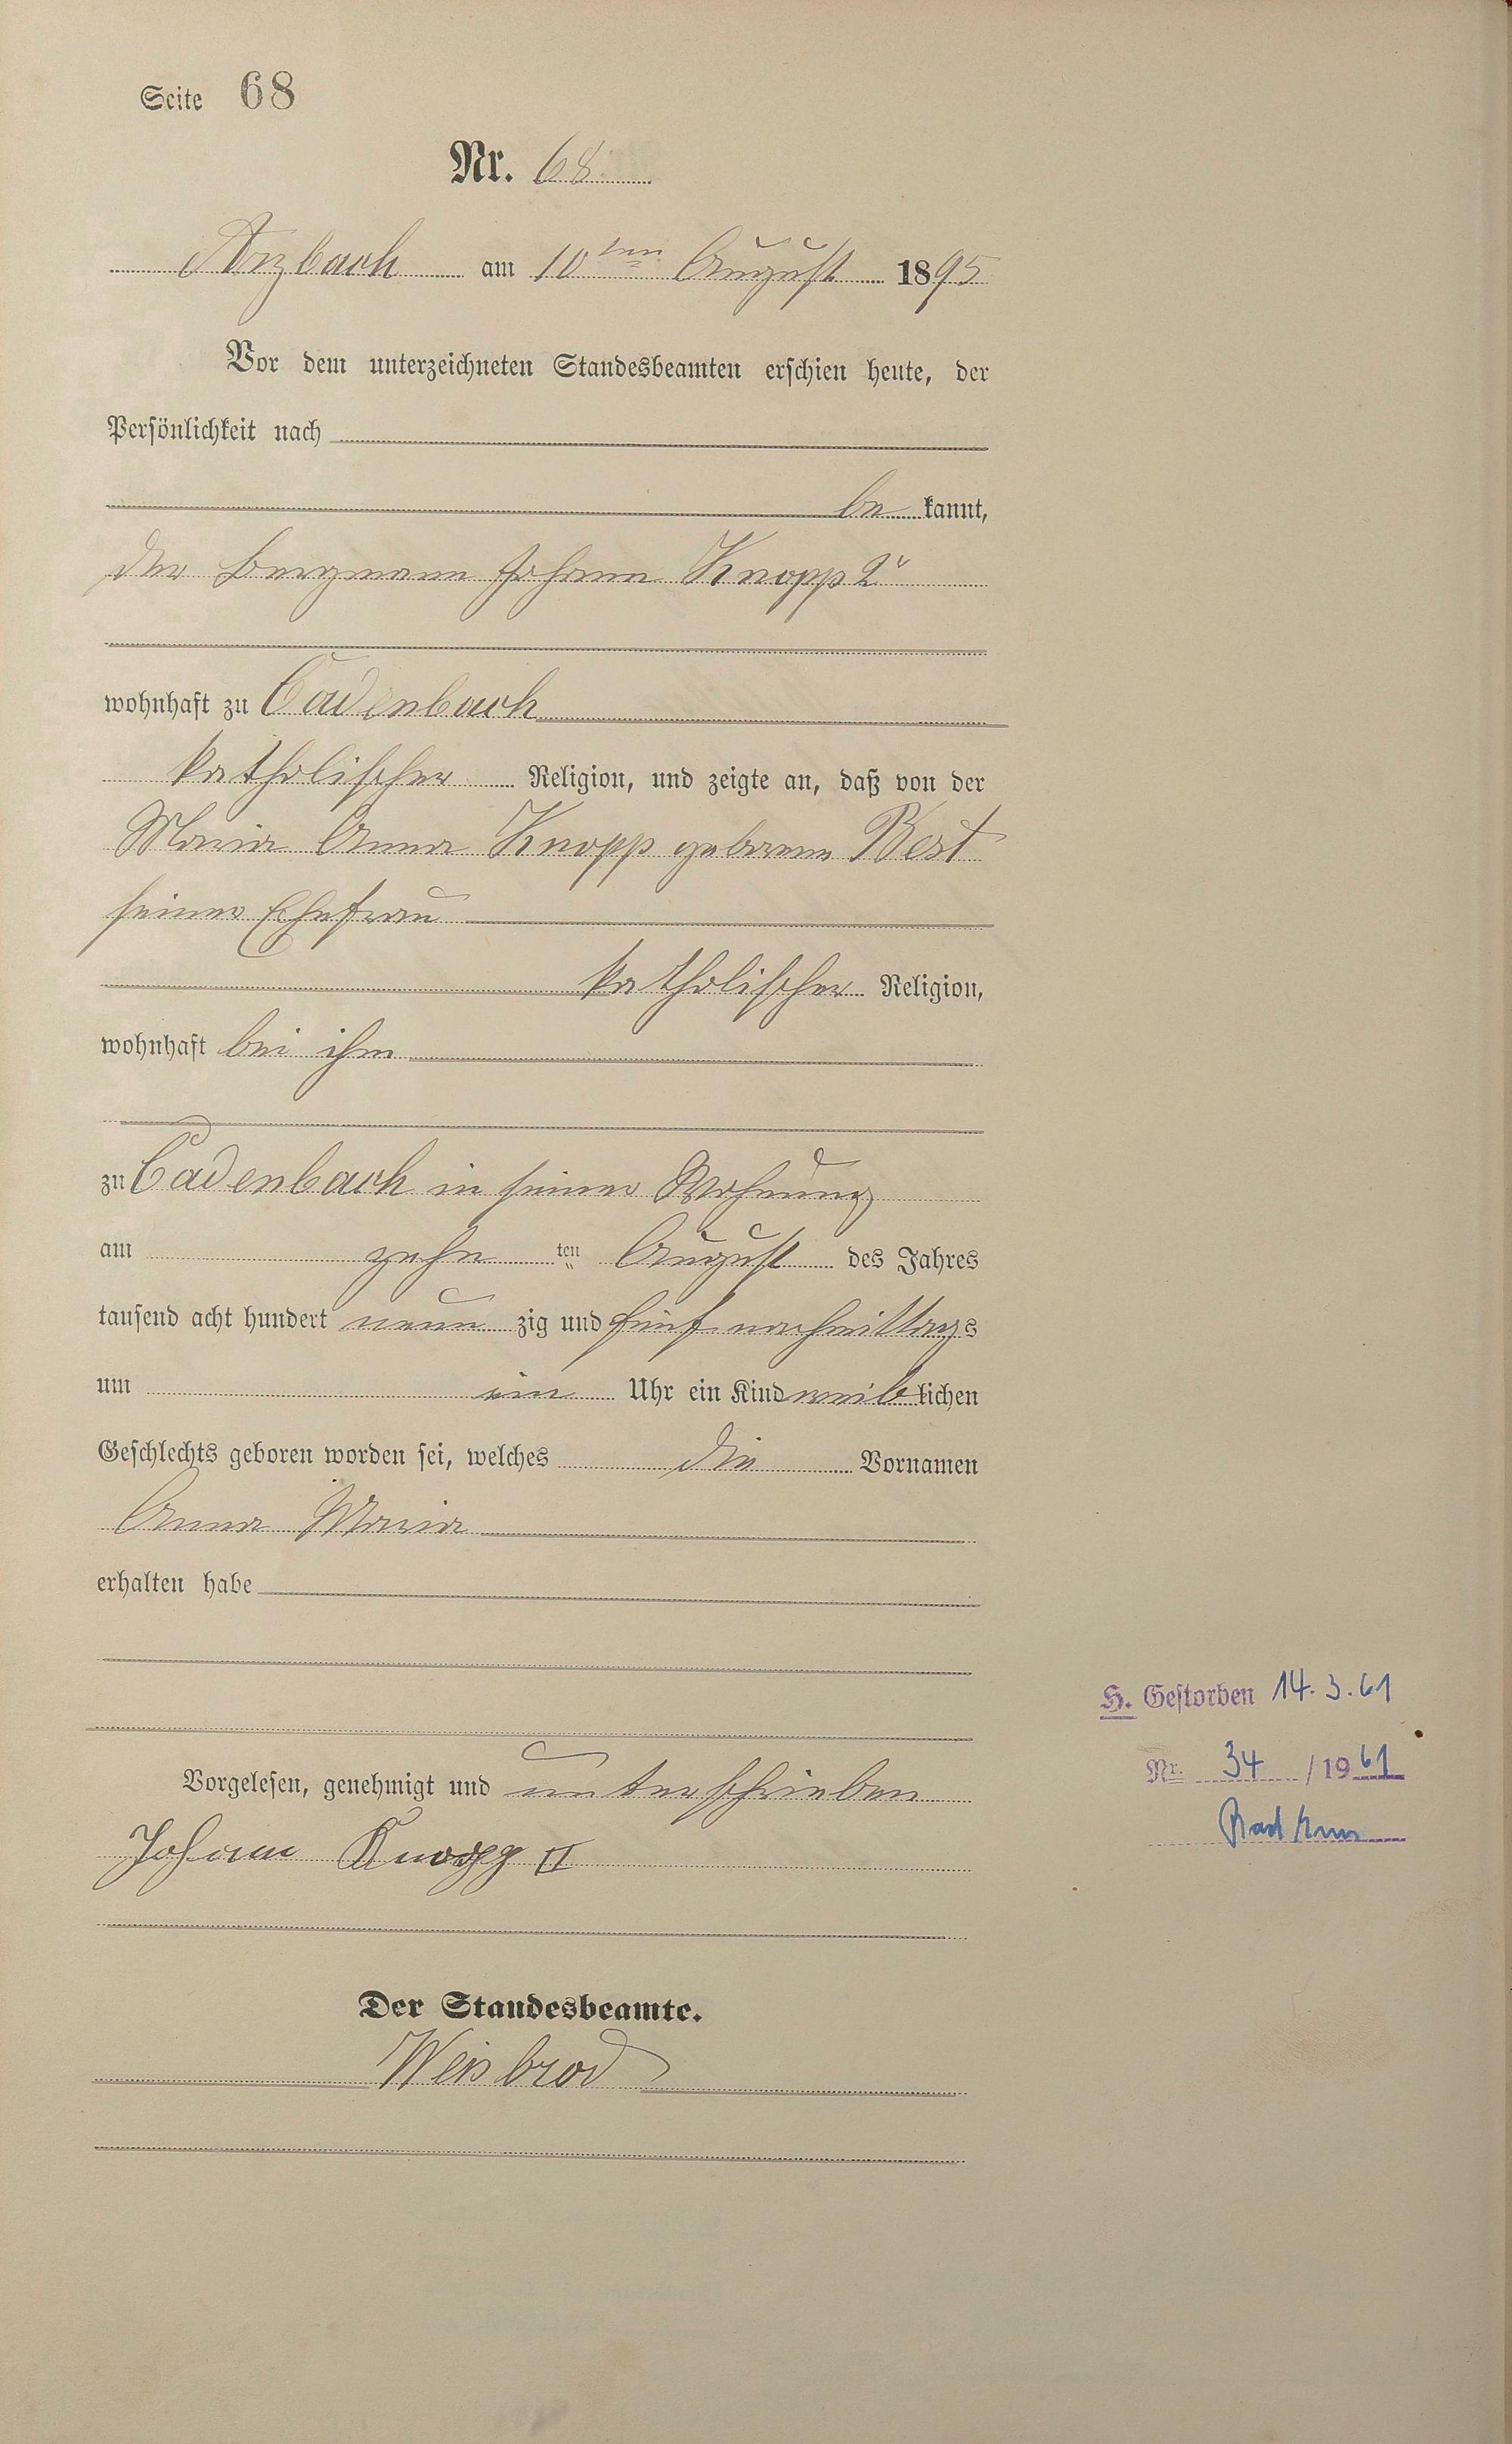 Seite 68
Nr. 68
Arzbach am 10ten August 1895
Vor dem unterzeichneten Standesbeamten erschien heute, der
Persönlichkeit nach
be kannt,
der Bergmann Johann Knopp 2r
wohnhaft zu Cadenbach
katholischer Religion, und zeigte an, daß von der
Maria Anna Knopp geborene Best
seiner Ehefrau
katholischer Religion,
wohnhaft bei ihm
zu Cadenbach in seiner Wohnung
am zehn ten August des Jahres
tausend acht hundert neun zig und fünf nachmittags
um ein Uhr ein Kind weiblichen
Geschlechts geboren worden sei, welches die Vornamen
Anna Maria
erhalten habe
Vorgelesen, genehmigt und unterschrieben
Johann Knopp II
Der Standesbeamte.
Weisbrod
H. Gestorben 14.3.61
Nr. 34 / 1961
Bad Ems